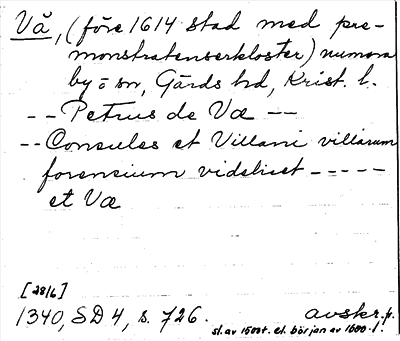 Vå, (före 1614 stad med pre-
monstratenserkloster) numera
by o sn, Gärds hd, Krist. l.
-- Petrus de Væ --
-- Consules et Villani villarum
forensium videlicet -----
et Væ
[28/6]
1340, SD 4, s. 726. avskr. p.
sl. av 1500t. el. början av 1600-t.